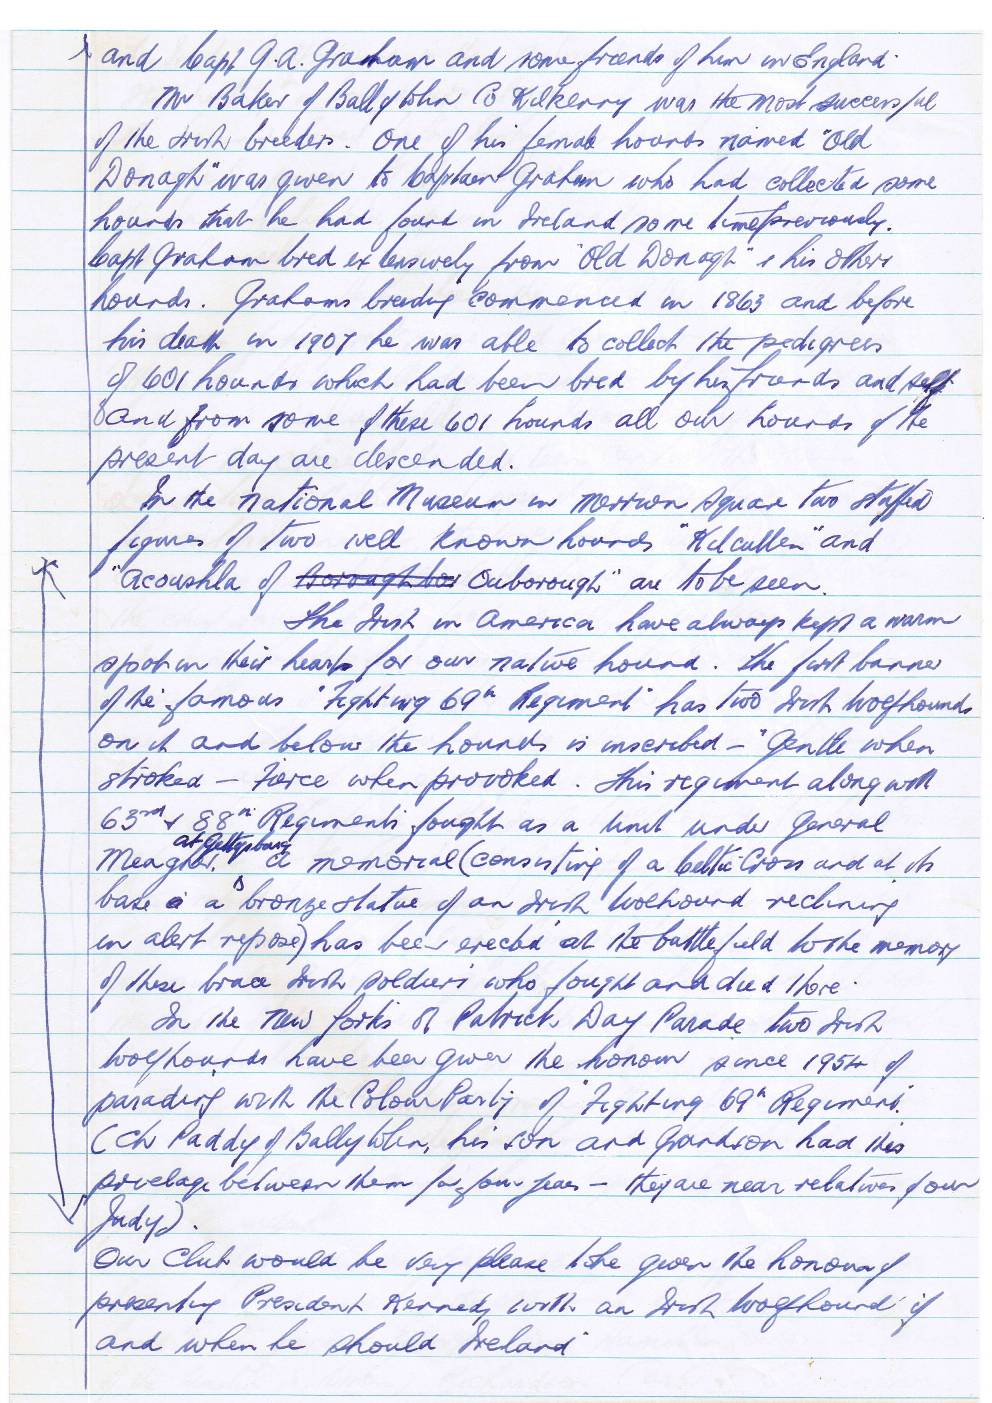 and Capt G.A. Graham and some friends of him in England.
Mr Baker of Ballytobin Co Kilkenny was the most successful
of the Irish breeders. One of his female hounds named "Old
Donagh" was given to Captain Graham who had collected some
hounds that he had found in Ireland some time previously.
Capt Graham bred extensively from "Old Donagh" & his other
hounds. Grahams breeding commenced in 1863 and before
his death in 1907 he was able to collect the pedigrees
of 601 hounds which had been bred by his friends and self
and from some of these 601 hounds all our hounds of the
present day are descended.
In the National Museum in Merrion Square two stuffed
figures of two well known hounds "Kilcullen" and
"Acoushla of Ouborough" are to be seen.
The Irish in America have always kept a warm
spot in their hearts for our native hound. The first banner
of the famous "Fighting 69th Regiment" has two Irish Wolfhounds
on it and below the hounds is inscribed – "Gentle when
stroked – Fierce when provoked. This regiment along with
63rd & 88th Regiments fought as a unit under General
Meagher. at Gettysburg A memorial (consisting of a Celtic Cross and at its
base a bronze statue of an Irish Wolfhound reclining
in alert repose) has been erected at the battlefield to the memory
of these brave Irish soldiers who fought and died there.
In the New Yorks St Patrick Day Parade two Irish
Wolfhounds have been given the honour since 1954 of
parading with the Colour Party of "Fighting 69th Regiment."
(Ch Paddy of Ballytobin, his son and Grandson had this
privelage between them for four years – they are near relatives of our
Judy).
Our Club would be very please to be given the honour of
presenting President Kennedy with an Irish Wolfhound if
and when he should Ireland